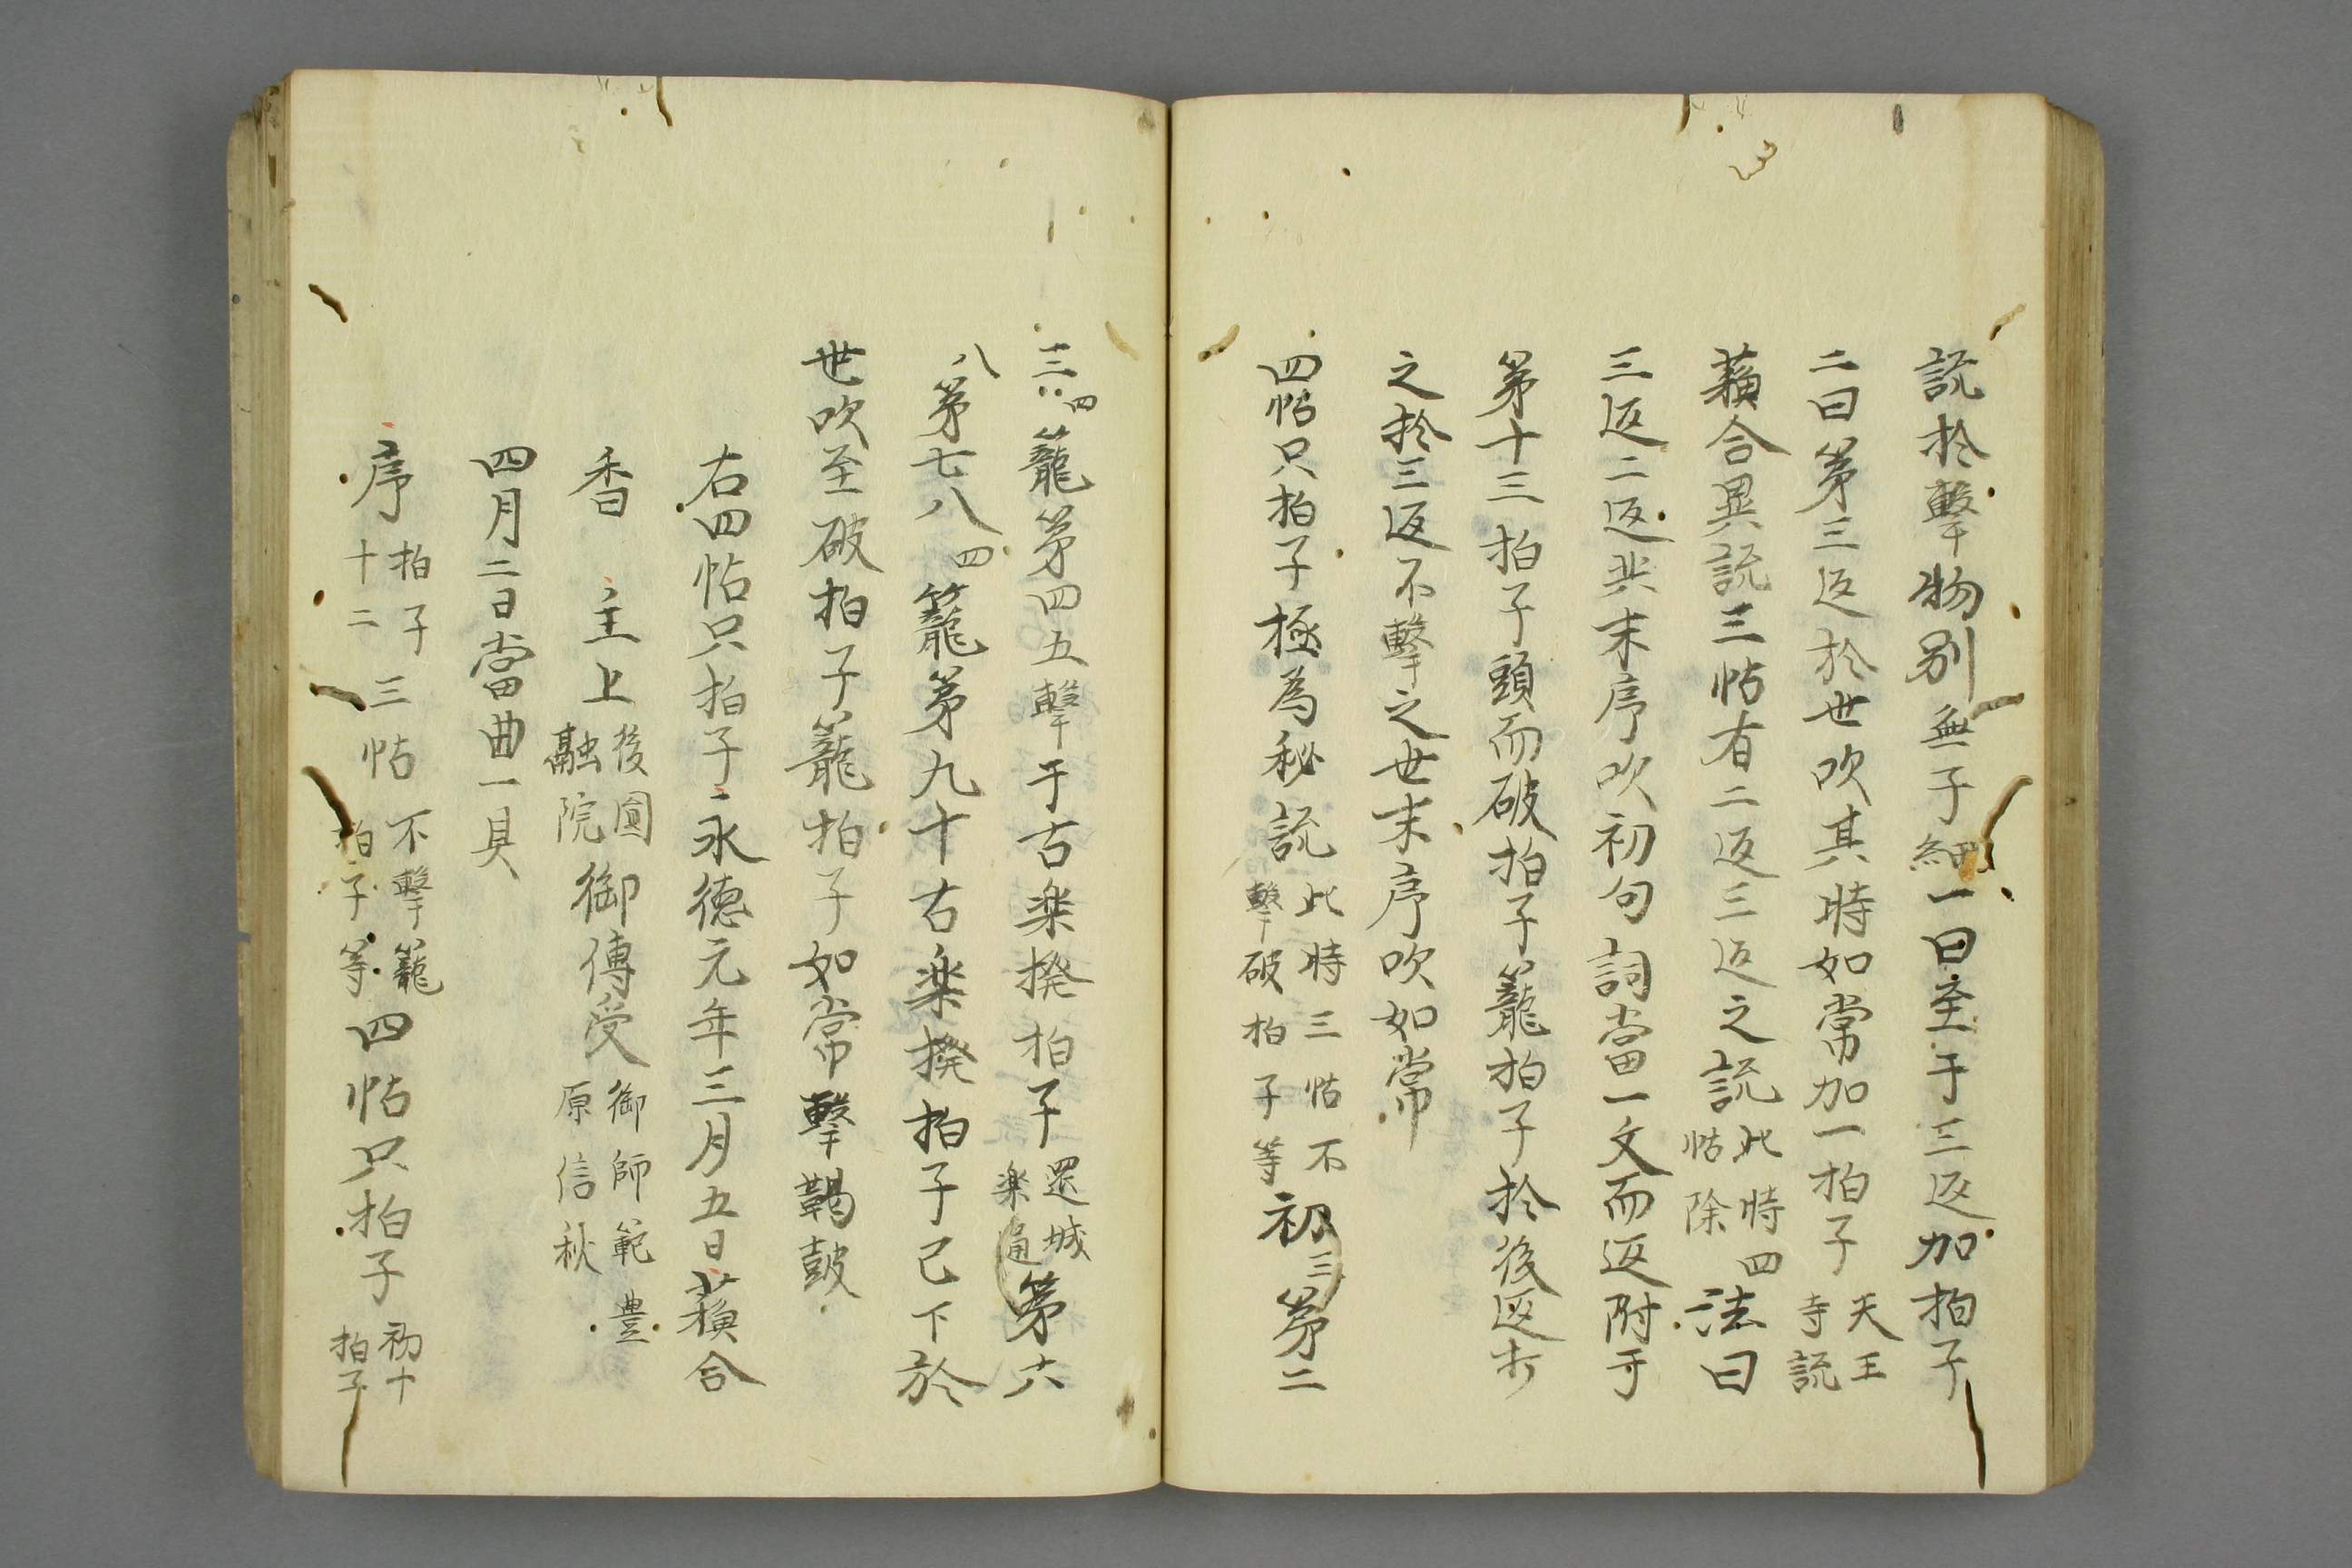 説於擊物別無子細一曰至于三返加拍子
二曰第三返於世吹其時如常加一拍子天王寺説
蘓合異説三帖有二返三返之説此時四帖除法曰
三返二返共末序吹初句詞當一文而返附于
第十三拍子頭而破拍子籠拍子於後返打
之於三返不擊之世末序吹如常
四帖只拍子極為秘説此時三帖不擊破拍子等初三第二
三四籠第四五擊于古楽揆拍子還城楽通第六
八第七八四籠第九十古楽揆拍子已下於
世吹至破拍子籠拍子如常擊鞨鼓
右四帖只拍子永徳元年三月五日蘓合
香主上後圓融院御傳受御師範豊原信秋
四月二日當曲一具
序拍子十二三帖不擊籠拍子等四帖只拍子初十拍子